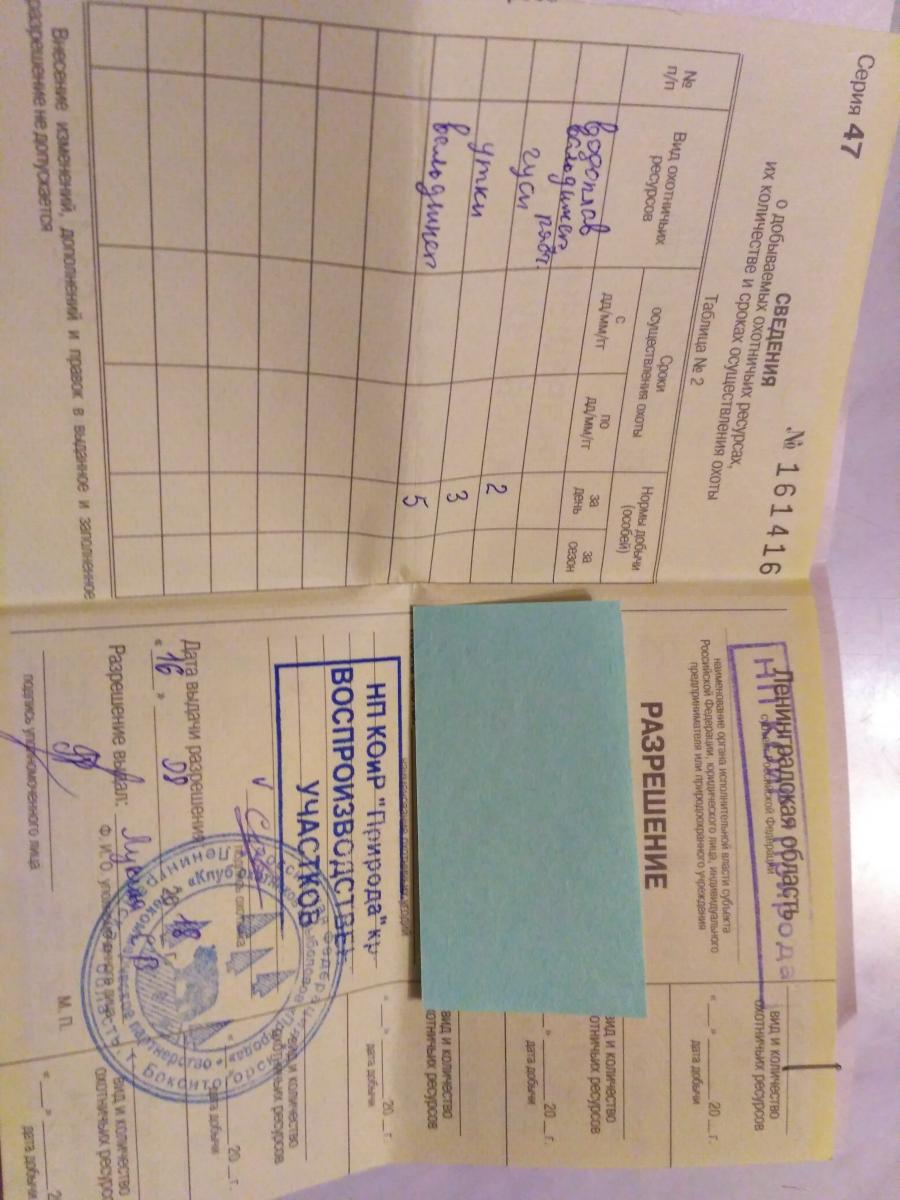 Серия 47 № 161416
СВЕДЕНИЯ
о добываемых охотничьих ресурсах,
их количестве и сроках осуществления охоты
Таблица № 2
№ п/п
Вид охотничьих ресурсов
Сроки осуществления охоты
с дд/мм/гг
по дд/мм/гг
Нормы добычи (особей)
за день
за сезон
водоплав
гуси 2
утки 3
вальдшнеп 5
Внесение изменений, дополнений и правок в выданное и заполненное
разрешение не допускается
Ленинградская область
субъект Российской Федерации
НП Природа
наименование органа исполнительной власти субъекта
Российской Федерации, юридического лица, индивидуального
предпринимателя или природоохранного учреждения
РАЗРЕШЕНИЕ
НП КОиР "Природа" кр
ВОСПРОИЗВОДСТВЕН
УЧАСТКОВ
подпись охотника
Дата выдачи разрешения
« 16 » 08 20 18 г.
Разрешение выдал:
подпись уполномоченного лица
М. П.
вид и количество
охотничьих ресурсов
« » 20 г.
дата добычи
вид и количество
охотничьих ресурсов
» 20 г.
дата добычи
вид и количество
охотничьих ресурсов
« » 20 г.
дата добычи
вид и количество
охотничьих ресурсов
« » 20 г.
дата добычи
вид и количество
охотничьих ресурсо
« » 2
дата добычи